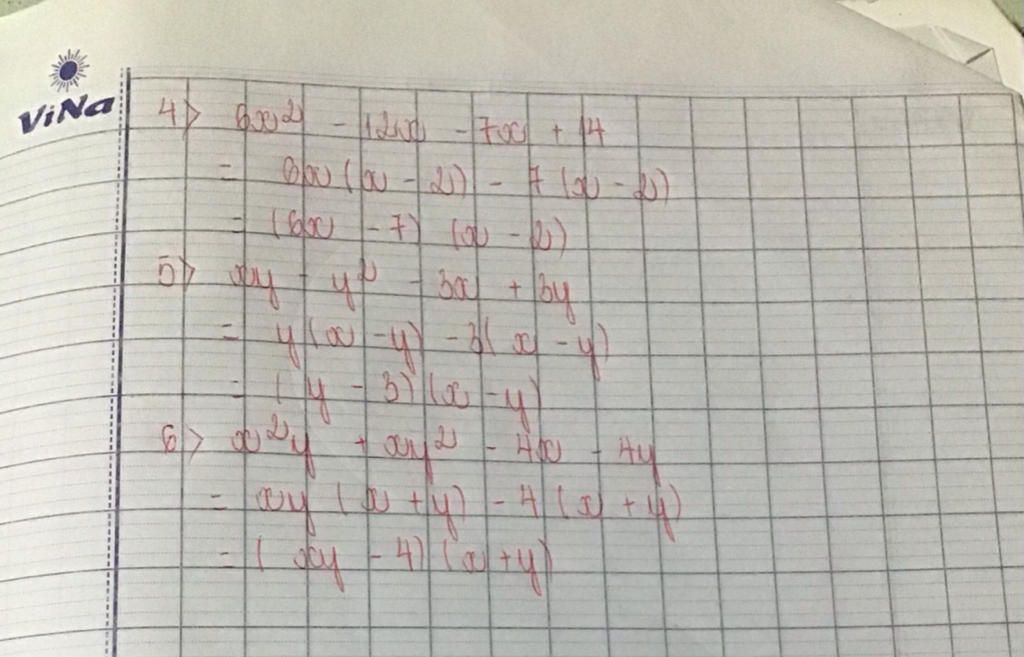 ViNa
4> 6x² - 12x - 7x + 14
= 6x (x - 2) - 7 (x - 2)
= (6x - 7) (x - 2)
5> xy - y² - 3x + 3y
= y (x - y) - 3 (x - y)
= (y - 3) (x - y)
6> x²y + xy² - 4x - 4y
= xy (x + y) - 4 (x + y)
= (xy - 4) (x + y)